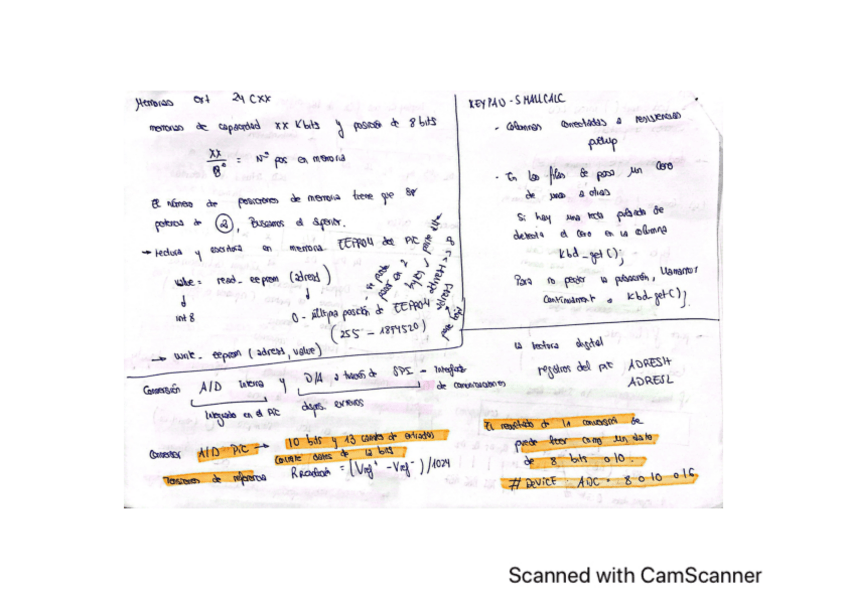 Memorias ext 24CXX
memorias de capacidad xx Kbits y posición de 8 bits
xx/8 = Nº pos en memoria
El número de posiciones de memoria tiene que ser
potencia de 2, Buscamos el superior.
→ lectura y escritura en memoria EEPROM del PIC
value = read_eeprom (adress)
int 8
0 - última posición de EEPROM
(255 - 1894520)
→ write_eeprom (adress, value)
KEYPAD - SMALLCALC
- Columnas conectadas a resistencias
pullup
- En las filas se pasa un Cero
de unas a otras
Si hay una tecla pulsada se
detecta el cero en la columna
Kbd_get();
Para no perder la pulsación, llamarlor
continuament a Kbd_get();
Conversión A/D interna y D/A a través de SPI - Interfaz
de comunicaciones
Integrado en el PIC
disps. externos
Conversor A/D PIC → 10 bits y 13 canales de entradas
Tensiones de referencia
Rresultado = (Vref+ - Vref-)/1024
La lectura digital
registros del PIC ADRESH
ADRESL
El resultado de la conversión se
puede leer como un dato
de 8 bits o 10.
# DEVICE ADC = 8 o 10 o 16
Scanned with CamScanner